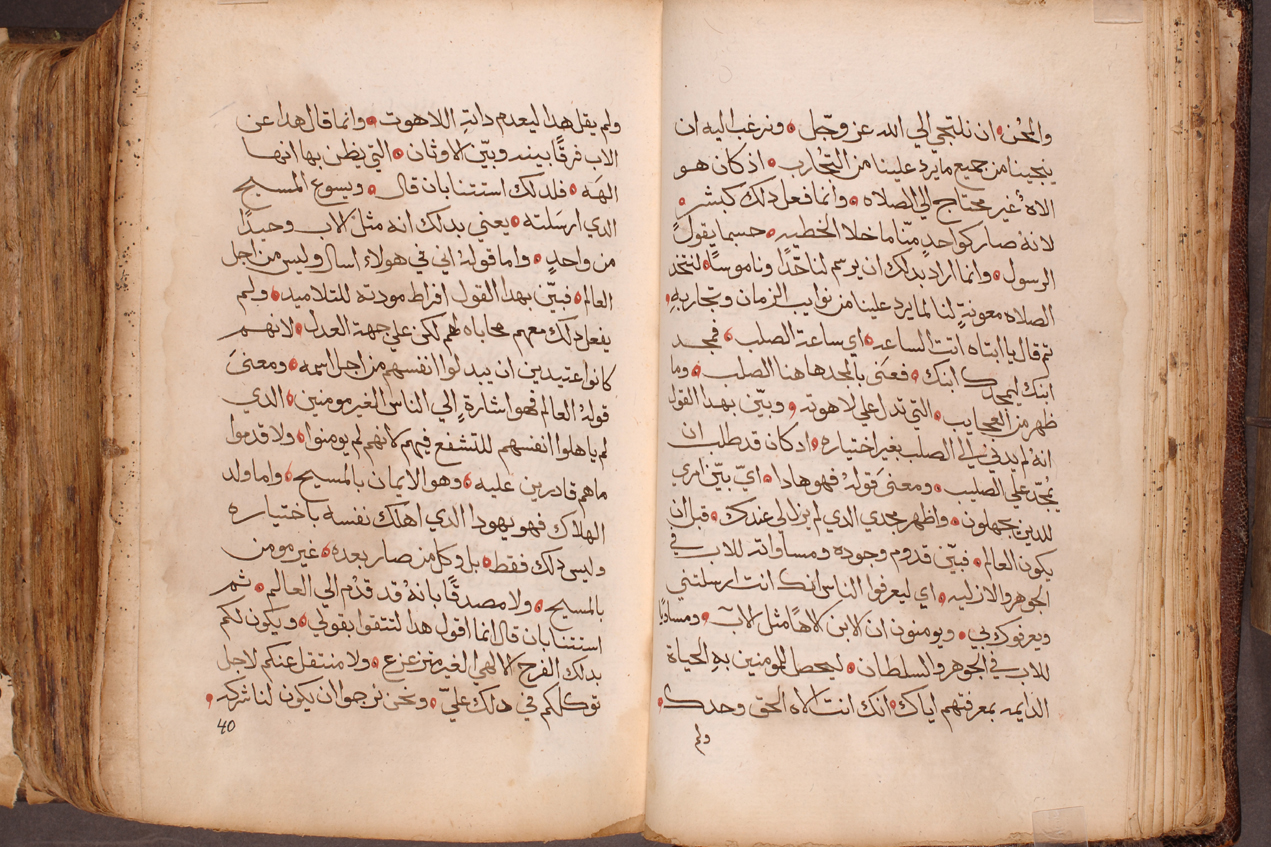 والمحن ان نلتجي الي الله عز وجل ٥ ونرغب اليه ان
ينجينا من جميع ما يرد علينا من التجارب ٥ اذ كان هو
الاه غير محتاج الي الصلاه ٥ وانما فعل ذلك كبشر ٥
لانه صار كواحدٍ منا ما خلا الخطيه ٥ حسبما يقول
الرسول ٥ وانما اراد بدلك ان يرسم لنا حدًا وناموسًا ٥ لنتخد
الصلاه معونةٍ لنا لما يرد علينا من نوايب الزمان وتجاربهِ ٥
تم قال يا ابتاه اتت الساعه ٥ اي ساعة الصلب ٥ فمجد
ابنك ليمجدك ابنك ٥ فعنَي بالمجد هاهنا الصلب ٥ وما
ظهر من العجايب ٥ التي تدل علي لاهوته ٥ وبيّن بهدا القول
انهُ لم يدني الي الصلب بغير اختياره ٥ اد كان قد طلب ان
يمُجد علي الصليب ٥ ومعنَي قولهُ فهو هادا ٥ ايّ بيّن امري
للدين يجهلون ٥ واظهر مجدي الدي لم يزل لي عندك ٥ قبل ان
يكون العالم ٥ فبيّن قدوم وجوده ومساواته للاب في
الجوهر والازليه ٥ اي ليعرفوا الناس انك انت ارسلتني
ويعرفوك وبي ٥ ويومنون ان الابن الاهًا مثل الاب ٥ ومساويًا
للاب في الجوهر والسلطان ٥ ليحصل للمومنين به الحياة
الدايمه بمعرفتهم اياك ٥ انك انت الاه الحق وحدك ٥
ولم
ولم يقل هدا ليعدم داتهِ اللاهوت ٥ وانما قال هدا عن
الاب فرقًا بينه وبيّن الاوثان ٥ التي يظن بها انها
الهَه ٥ فلدلك استتنا بان قال ٥ ويسوع المسيح
الدي ارسَلته ٥ يعني بدلك انه مثل الاب وحيدًا
من واحدٍ ٥ واما قولهُ اني في هولاء اسال وليس من اجل
العالم ٥ فبيّن بهدا القول افراط مودته للتلاميد ٥ ولم
يفعل دلك معهم محاباه لهم لكن علي جهة العدل ٥ لانهم
كانوا عتيدين ان يبدلوا انفسهم من اجل اسمه ٥ ومعنَي
قولهُ العالم فهو اشارةٍ الي الناس الغير مومنين ٥ الدي
لم ياهلوا انفسهم للتشفع فيهم لانهم لم يومنوا ٥ ولا قدموا
ما هم قادرين عليه ٥ وهو الايمان بالمسيح ٥ واما ولد
الهلاك فهو يهودا الدي اهلك نفسه باختياره
وليس دلك فقط ٥ بل وكل من صار بعده ٥ غير مومن
بالمسيح ٥ ولا مصدقًا بانهُ قد قدُم الي العالم ٥ ثم
استتنا بان قال انما اقول هدا لتتقوا بقولي ٥ ويكون لكم
بدلك الفرح الالهي الغير متزعزع ٥ ولا منتقل عنكم لاجل
توكلكم في دلك عليّ ٥ ونحن نرجوا ان يكون لنا شركه ٥
40